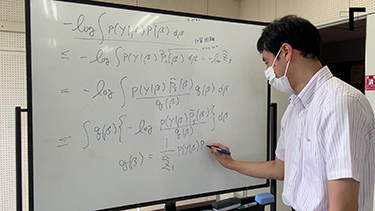 - log ∫ P(Y|β) P(β) dβ
≤ - log ∫ P(Y|β) P̃ₛ(β) dβ = - log Z̃₁
= - log ∫ P(Y|β) P̃ₛ(β) / q(β) q(β) dβ
≤ ∫ q(β) { - log P(Y|β) P̃ₛ(β) / q(β) } dβ
q(β) = 1 / Z̃₁ P(Y|β) P